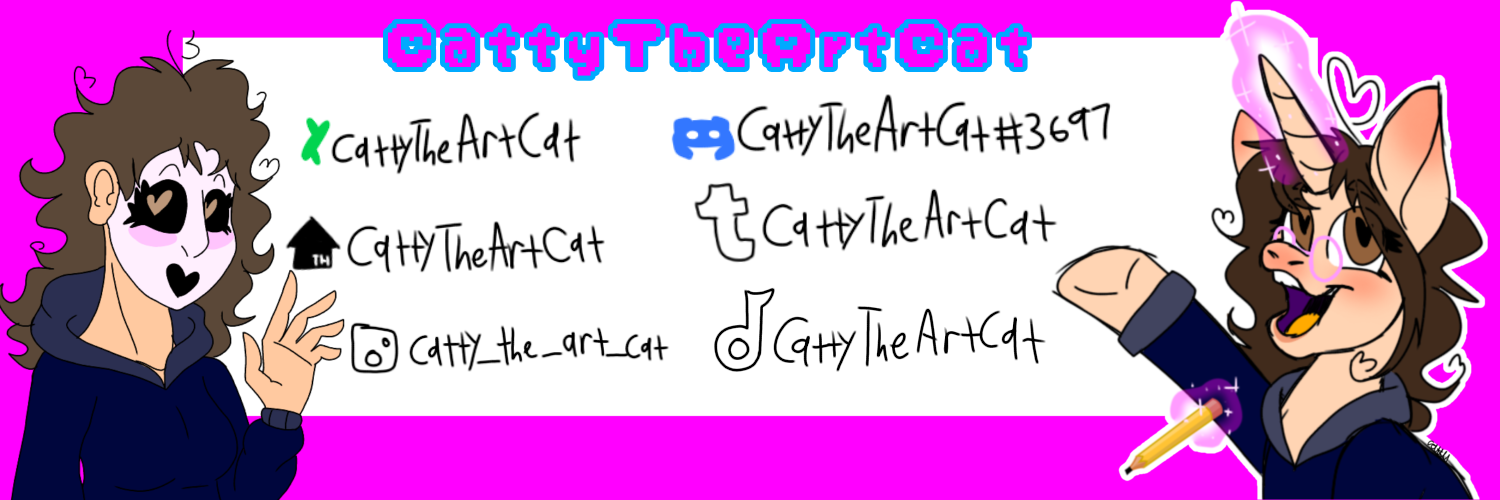 CattyTheArtCat
CattyTheArtCat
CattyTheArtCat#3697
TH CattyTheArtCat
t CattyTheArtCat
catty_the_art_cat
CattyTheArtCat